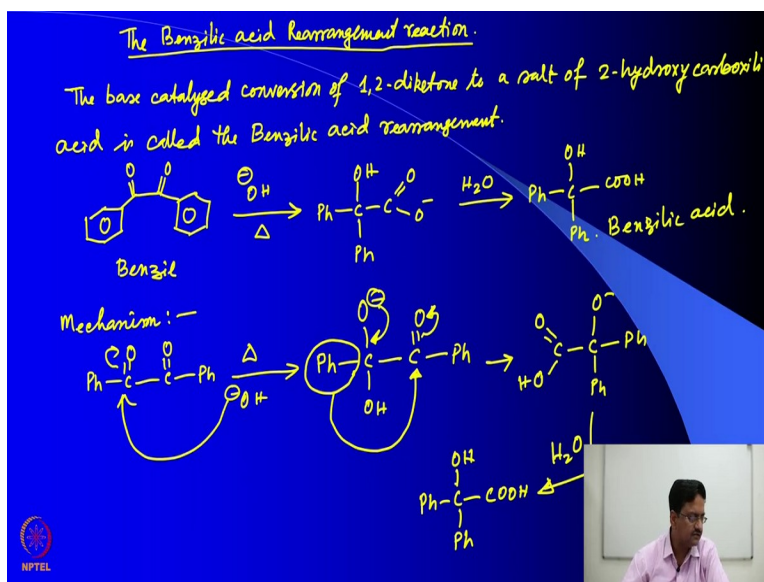 The Benzilic acid Rearrangement reaction.
The base catalysed conversion of 1,2-diketone to a salt of 2-hydroxy carboxili
acid is called the Benzilic acid rearrangement.
O O
⊖OH
Δ
OH O
Ph-C-C
O⁻
Ph
H₂O
OH
Ph-C-COOH
Ph.
Benzilic acid.
Benzil
Mechanism:-
O O
Ph-C-C-Ph
Δ
⊖OH
O⊖ O
Ph-C-C-Ph
OH
O O⁻
C-C-Ph
HO Ph
H₂O
Δ
OH
Ph-C-COOH
Ph
NPTEL